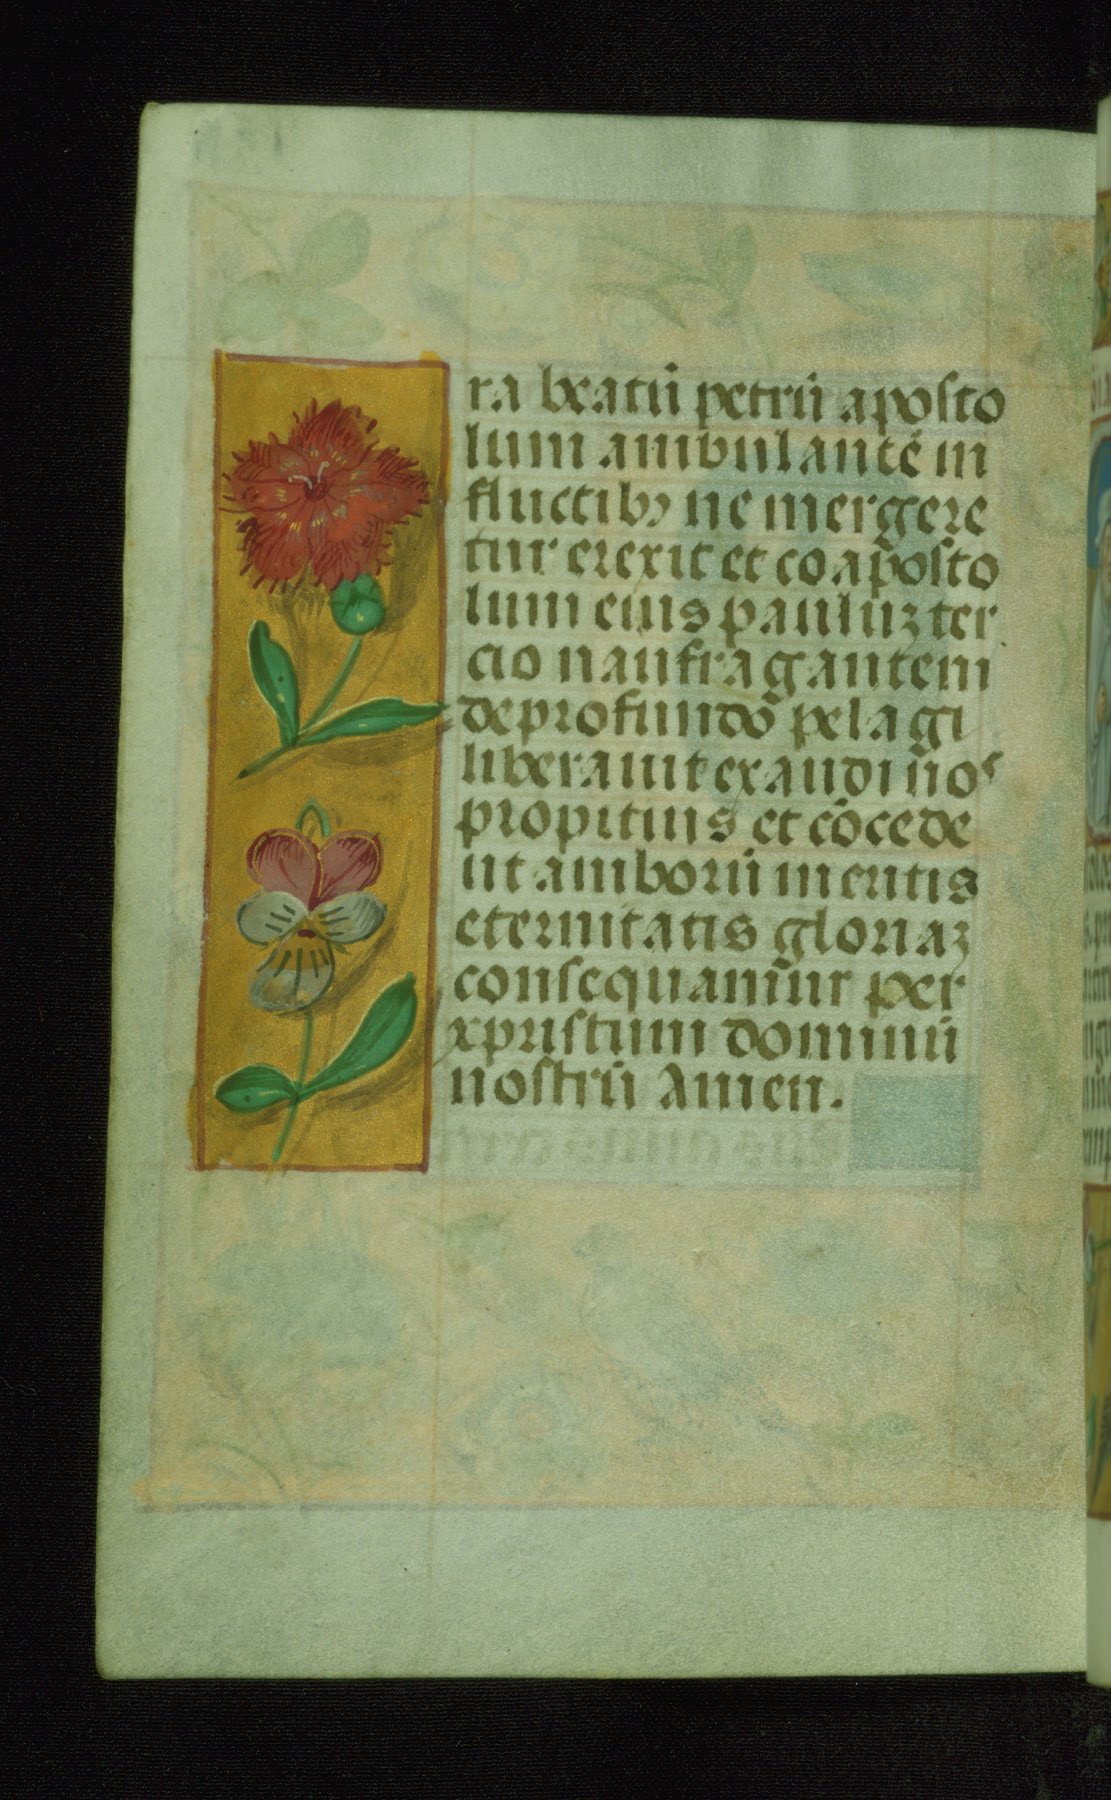 ra beatū petrū aposto
lum ambulantē in
fluctibꝫ ne mergere
tur erexit et coaposto
lum eius pauluꝫ ter
cio naufragantem
de profundo pelagi
liberauit exaudi nos
propitius et cōcede
ut amborū meritis
eternitatis gloriaꝫ
consequamur per
xpristum dominū
nostrū Amen.